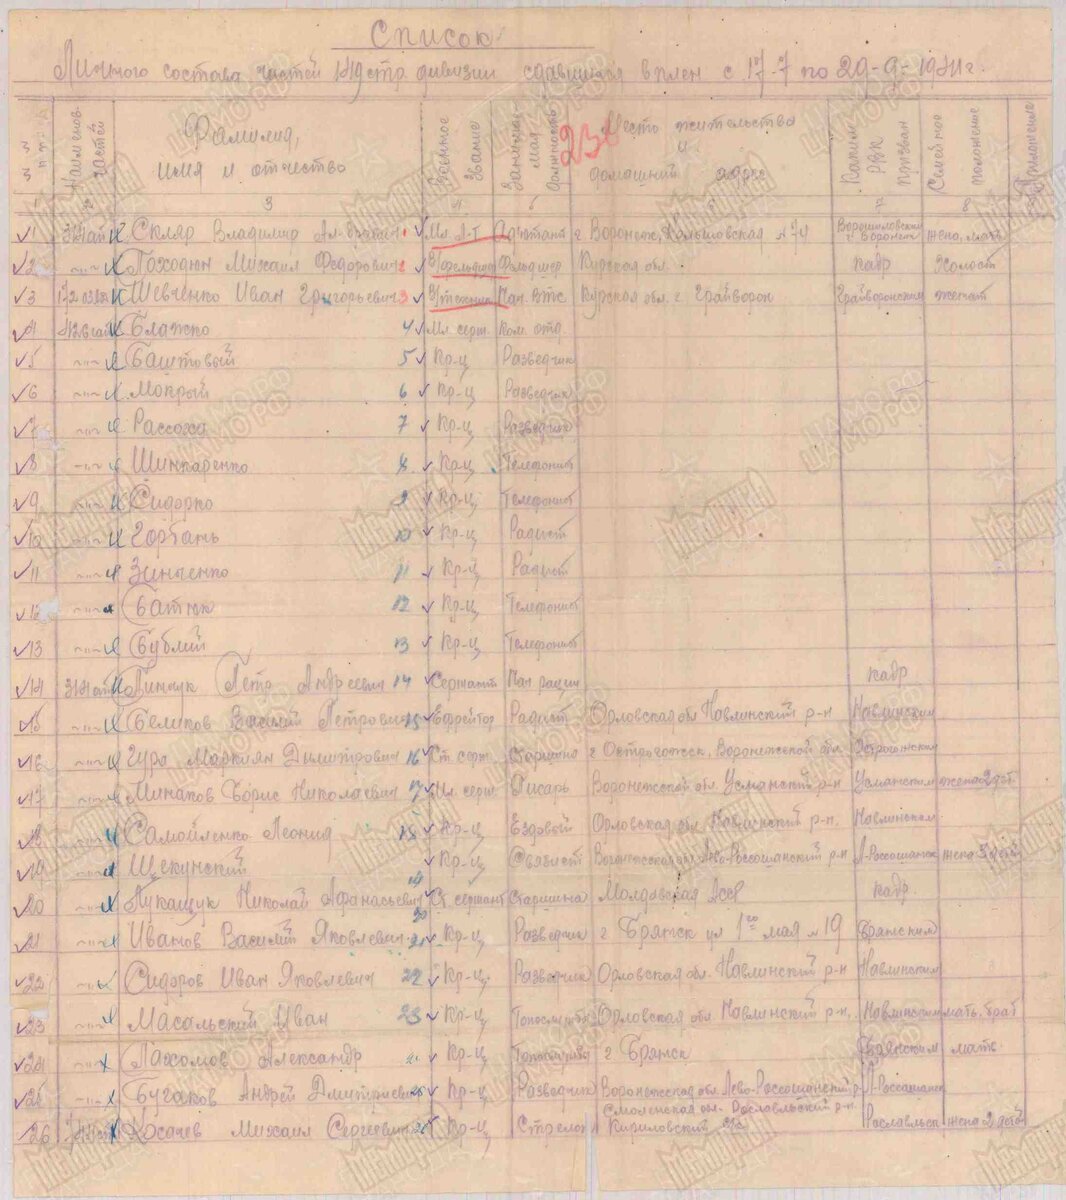 Список
Личного состава частей стр. дивизии сдавшихся в плен с 17-7 по 29-9-1941 г.
№ Наименов. частей Фамилия, имя и отчество Военное звание Занимаемая должность Место жительства и домашний адрес Каким РВК призван Семейное положение
230
1 2 3 4 5 6 7 8
1 Скляр Владимир 1 Мл. Л-т Адъютант г. Воронеж, 74 Ворошиловский г. Воронеж жена, мать
2 -"- Походюн Михаил Федорович 2 В/фельдшер Фельдшер Курская обл. кадр Холост
3 Шевченко Иван Григорьевич 3 В/техник Нач. Курская обл. г. Грайворон Грайворонским женат
4 Блажко 4 Мл. серж. Ком. отд.
5 -"- Баштовый 5 Кр-ц Разведчик
6 -"- Мокрый 6 Кр-ц Разведчик
7 -"- Рассоха 7 Кр-ц Разведчик
8 -"- Шинкаренко 8 Кр-ц Телефонист
9 -"- Сидорко 9 Кр-ц Телефонист
10 -"- Горбань 10 Кр-ц Радист
11 -"- Зинченко 11 Кр-ц Радист
12 -"- Батюк 12 Кр-ц Телефонист
13 -"- Бублий 13 Кр-ц Телефонист
14 Пинчук Петр Андреевич 14 Сержант Нач. рации кадр.
15 -"- Беликов Василий Петрович 15 Ефрейтор Радист Орловская обл. Навлинский р-н Навлинским
16 -"- Гура Маркиян Димитрович 16 Ст. серж. Старшина г. Острогожск, Воронежской обл. Острогожским
17 -"- Минаков Борис Николаевич 17 Мл. серж Писарь Воронежской обл. Усманский р-н Усманским жена 2 дет.
18 -"- Самойленко Леонид 18 Кр-ц Ездовый Орловская обл. Навлинский р-н. Навлинским
19 -"- Щекунский 19 Кр-ц Связист Воронежская обл. Лево-Россошанский р-н Л-Россошанск жена 3 детей
20 -"- Лукащук Николай Афанасьевич 20 Ст. сержант Старшина Молдавская АССР кадр.
21 -"- Иванов Василий Яковлевич 21 Кр-ц Разведчик г. Брянск ул 1го мая № 19 Брянским
22 -"- Сидоров Иван Яковлевич 22 Кр-ц Разведчик Орловская обл. Навлинский р-н Навлинским
23 -"- Масальский Иван 23 Кр-ц Орловская обл. Навлинский р-н, Навлинским мать, брат
24 -"- Пахомов Александр 24 Кр-ц г. Брянск Брянским мать.
25 -"- Бугаков Андрей Дмитриевич 25 Кр-ц Разведчик Воронежская обл. Лево-Россошанский р-н Л-Россошанск
26 Косачев Михаил Сергеевич 26 Кр-ц Стрелок Смоленская обл. Рославльский р-н. Кириловский с/с Рославльск жена 2 детей